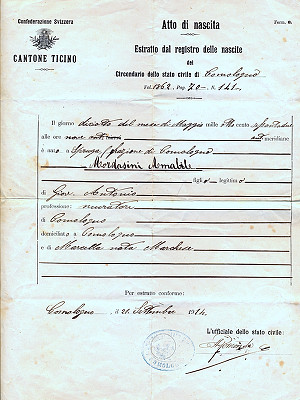 Confederazione Svizzera
CANTONE TICINO
Atto di nascita
Form. 0.
Estratto dal registro delle nascite
del
Circondario dello stato civile di Comologno
Vol. 1862. Pag. 70 - N. 141.
Il giorno diciotto del mese di Maggio mille otto cento
alle ore nove antimeridiane
è nato a Spruga frazione di Comologno
Mordasini Amabile
figlio legittimo
di Giov. Antonio
professione: muratore
di Comologno
domiciliato a Comologno
e di Marietta nata Marchese
Per estratto conforme:
Comologno il 21 Settembre 1914.
L'ufficiale dello stato civile: